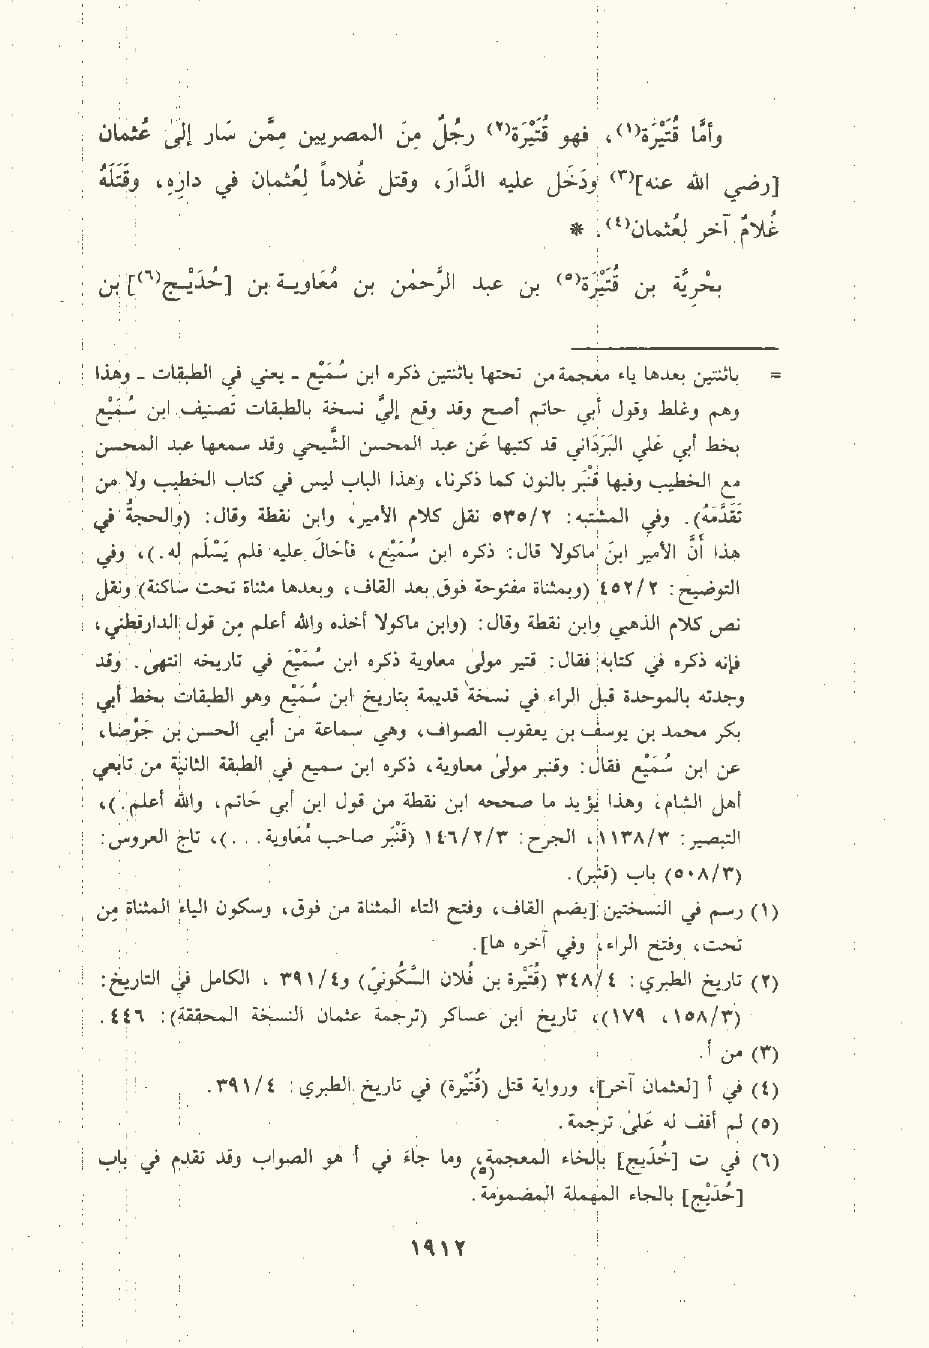 وأمَّا قُتَيْرَة(١)، فهو قُتَيْرَة(٢) رجُلٌ مِنَ المصريين مِمَّن سَار إلىٰ عُثمان
[رضي الله عنه](٣) ودَخَل عليه الدَّارَ، وقتل غُلاماً لِعُثمان في دارِهِ، وقَتَلَهُ
غُلامٌ آخر لعُثمان(٤). *
بحْريَّة بن قُتَيْرَة(٥) بن عبد الرَّحمٰن بن مُعَاوية بن [حُدَيْج(٦)] بن
= باثنتين بعدها ياء معجمة من تحتها باثنتين ذكره ابن سُمَيْع - يعني في الطبقات - وهذا
وهم وغلط وقول أبي حاتم أصح وقد وقع إليَّ نسخة بالطبقات تَصنيف ابن سُمَيْع
بخط أبي عَلي البَرَدَاني قد كتبها عَن عبد المحسن الشَّيحي وقد سمعها عبد المحسن
مع الخطيب وفيها قَنْبر بالنون كما ذكرنا، وهذا الباب ليس في كتاب الخطيب ولا من
تَقَدَّمَهُ). وفي المشتبه: ٥٣٥/٢ نقل كلام الأمير، وابن نقطة وقال: (والحجةُ في
هذا أنَّ الأمير ابنَ ماكولا قال: ذكره ابن سُمَيْع، فأحَالَ عليه فلم يَسْلَم له.)، وفي
التوضيح: ٤٥٢/٢ (وبمثناة مفتوحة فوق بعد القاف، وبعدها مثناة تحت ساكنة) ونقل
نص كلام الذهبي وابن نقطة وقال: (وابن ماكولا أخذه والله أعلم مِن قول الدارقطني،
فإنه ذكره في كتابه فقال: قتير مولىٰ معاوية ذكره ابن سُمَيْع في تاريخه انتهىٰ. وقد
وجدته بالموحدة قبل الراء في نسخة قديمة بتاريخ ابن سُمَيْع وهو الطبقات بخط أبي
بكر محمد بن يوسف بن يعقوب الصواف، وهي سماعة من أبي الحسن بن جَوْصَا،
عن ابن سُمَيْع فقال: وقنبر مولىٰ معاوية، ذكره ابن سميع في الطبقة الثانية من تابعي
أهل الشام، وهذا يؤيد ما صححه ابن نقطة من قول ابن أبي حَاتم، والله أعلم.)،
التبصير: ١١٣٨/٣، الجرح: ١٤٦/٢/٣ (قَنْبَر صاحب مُعَاوية. . .)، تاج العروس:
(٥٠٨/٣) باب (قنبر).
(١) رسم في النسختين [بضم القاف، وفتح التاء المثناة من فوق، وسكون الياء المثناة مِن
تحت، وفتح الراء، وفي آخره ها].
(٢) تاريخ الطبري: ٣٤٨/٤ (قُتَيْرة بن فُلان السَّكُونيّ) و٣٩١/٤، الكامل في التاريخ:
(١٥٨/٣، ١٧٩)، تاريخ ابن عساكر (ترجمة عثمان النسخة المحققة): ٤٤٦.
(٣) من أ.
(٤) في أ [لعثمان آخر]، ورواية قتل (قُتَيْرة) في تاريخ الطبري: ٣٩١/٤.
(٥) لم أقف له عَلىٰ ترجمة.
(٦) في ت [خُدَيج] بالخاء المعجمة، وما جاءَ في أ هو الصواب وقد تقدم في باب
(٥)
[حُدَيْج] بالحاء المهملة المضمومة.
١٩١٢